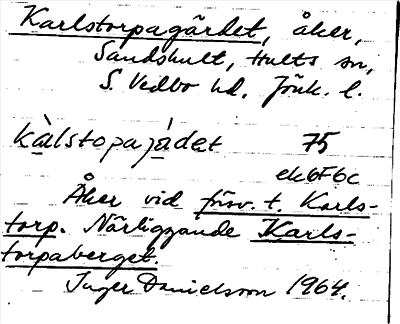 Karlstorpagärdet, åker,
Sandshult, Hults sn,
S. Vedbo hd. Jönk. l.
kàlstopajádet 75
ek6F6c
Åker vid försv. t. Karls-
torp. Närliggande Karls-
torpaberget.
Inger Danielsson 1964.